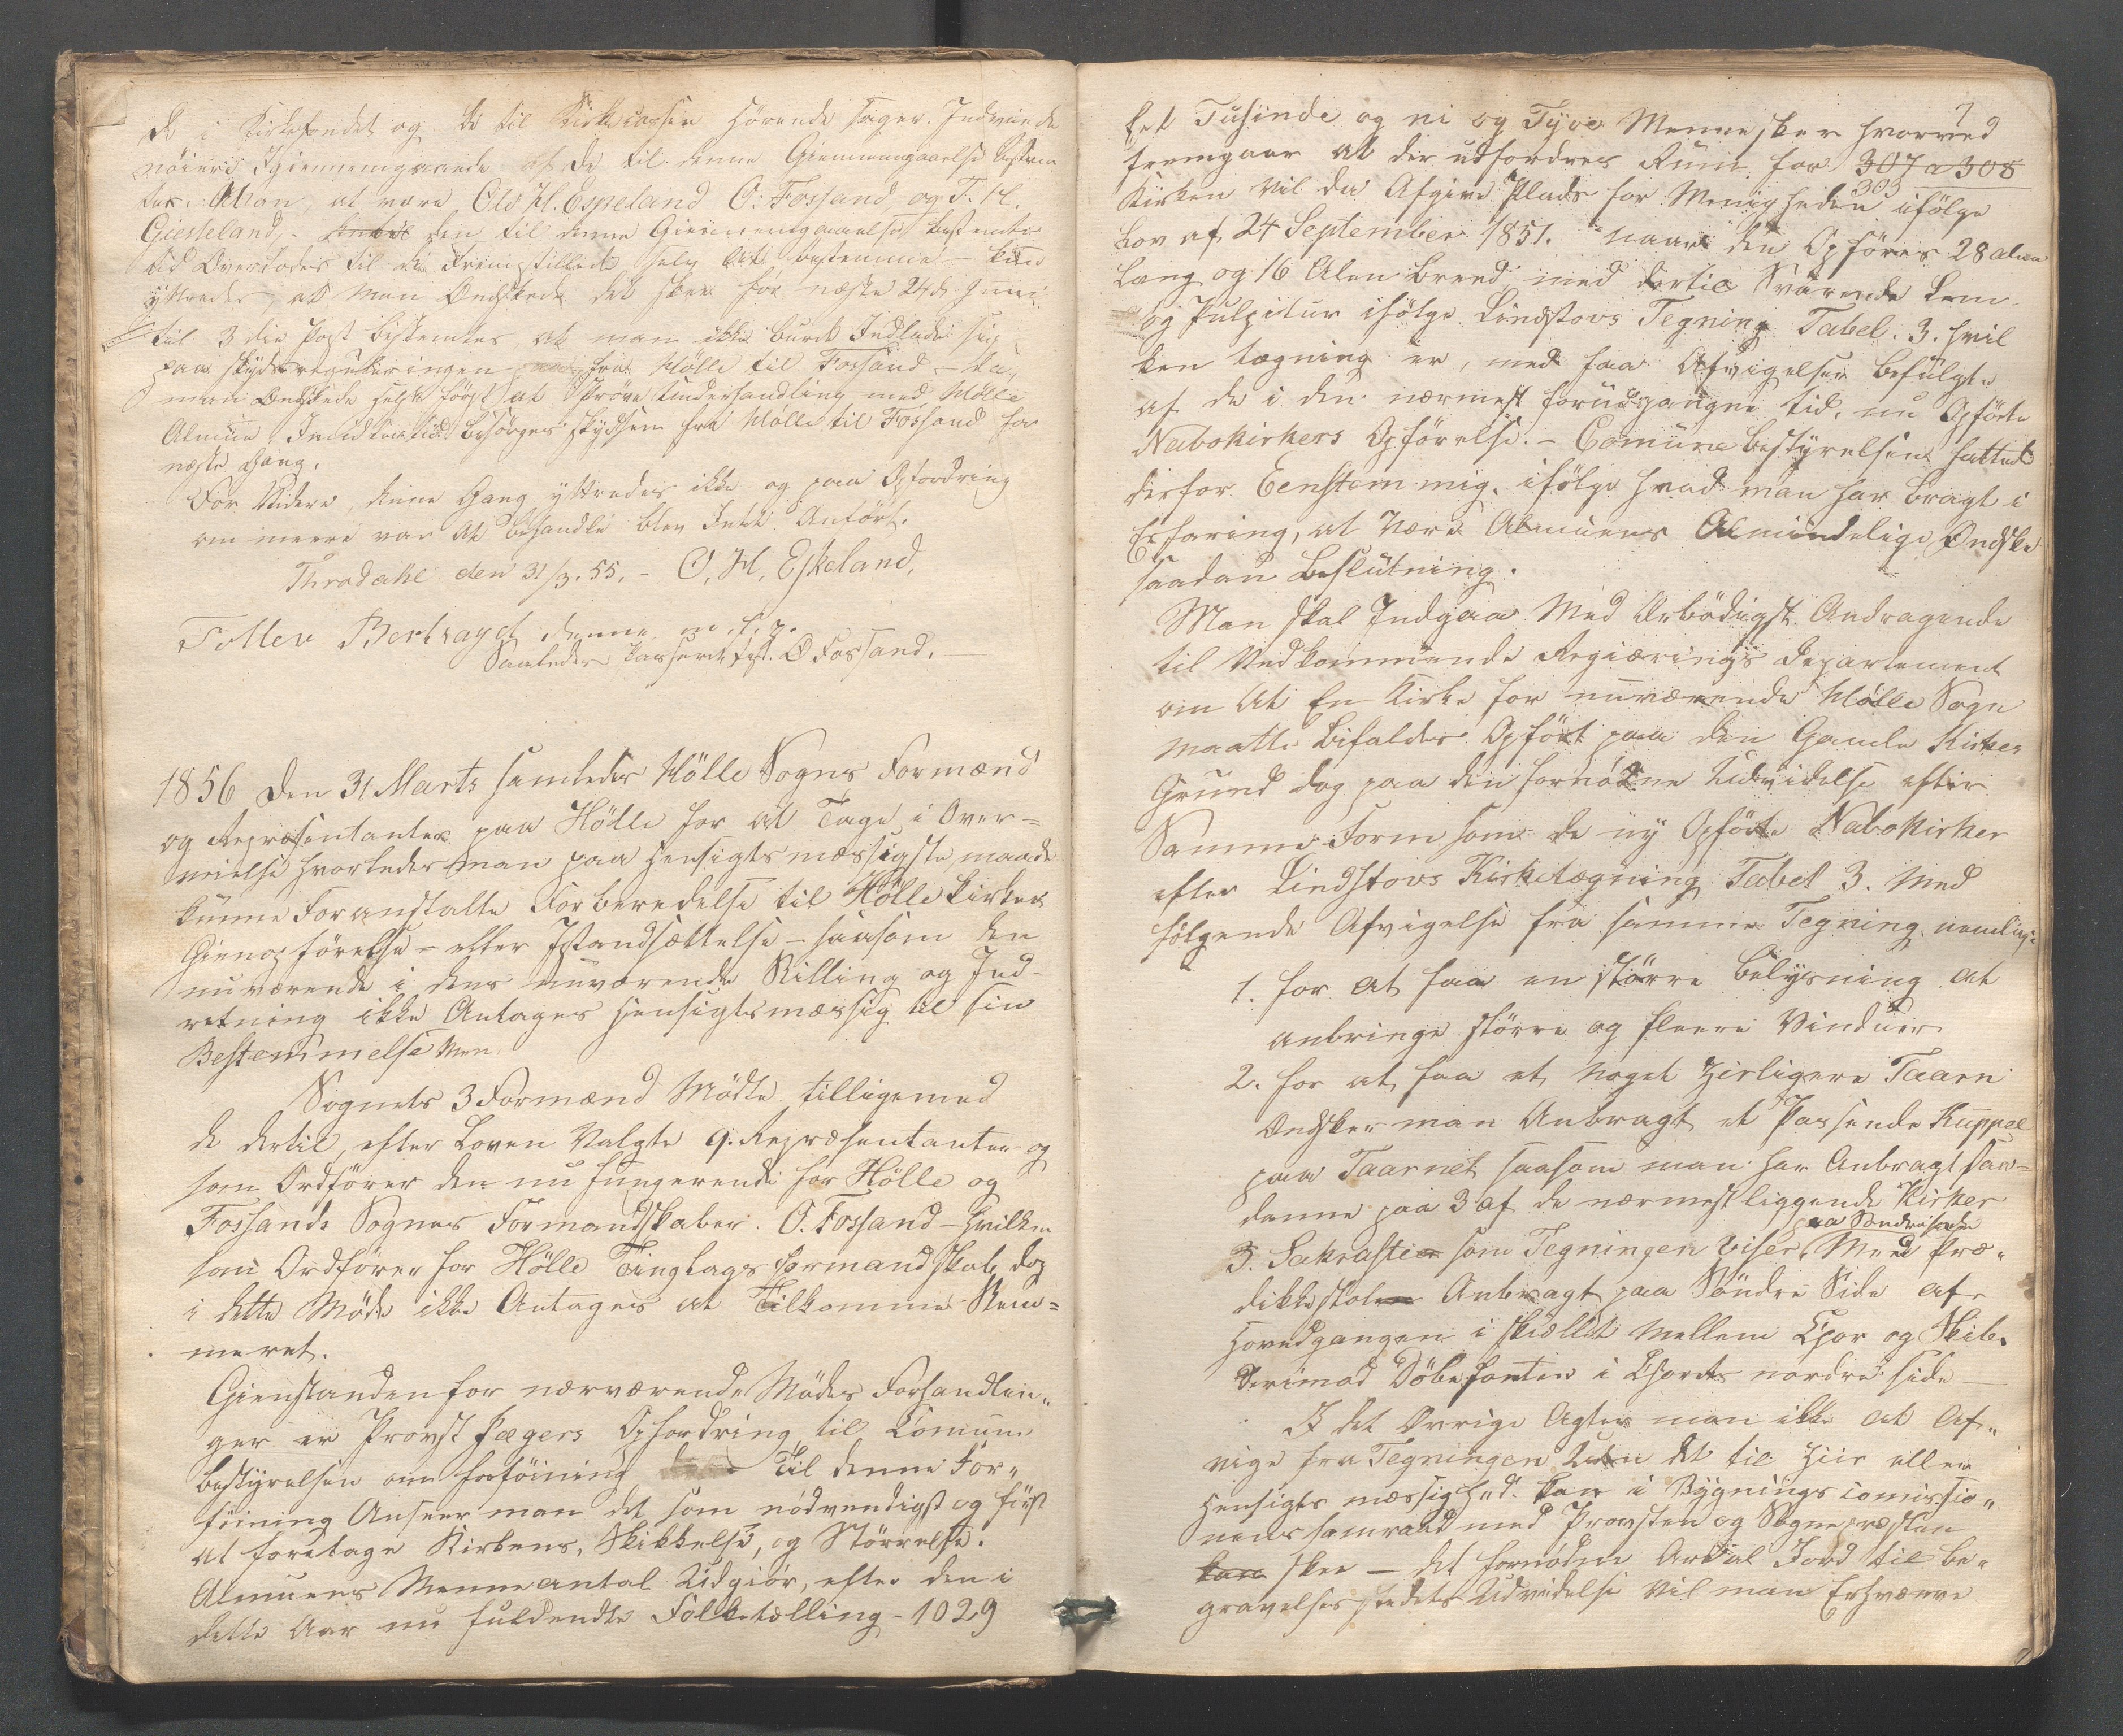 de i Kirkefondet og de til Kirkecassen hörende sager. Indvinde
nöiere Igiennemgaaende af de til denne Giennemgaaelse bestem
tes. Mon, at være Ole H. Espeland O. Fossand, og T. H.
Giesteland, - den til denne Giennemgaaelse bestemte
tid Overlodes til de Fremstillede selv at bestemme - kun
yttredes, at man Öndskede det skee för næste 24de Juni
til 3die Post bestemtes at man ikke burde Indlade sig
paa skydsreguleringen fra Hölle til Fossand - da,
man Öndskede helst först at Pröve Underhandling med Hölle
Almue. Imidlertid besörges skydsen fra Hölle til Fossand for
næste Gang.
For Videre, denne Gang yttredes ikke og paa Opfordring
om meere var at behandle blev Intet Anfört.
Throdahl den 31/3. 55. - O. H. Eskeland,
Tollev Bertsayel denne m. f. p.
Saaledes Passeret test. O Fossand.
1856 Den 31 Marts samledes Hölle Sogns Formænd
og Repræsentanter paa Hölle for at Tage i Over=
veielse hvorledes man paa hensigtsmæssigste maade
kunne Foranstalte Forberedelse til Hölle Kirkes
Gienopförelse - eller Istandsættelse - saasom den
nuværende i dens nuværende Stilling og Ind-
retning ikke Antages hensigtsmæssig til sin
Bestemmelse Men.
Sognets 3 Formænd Mödte tilligemed
de dertil, efter Loven Valgte 9. Repræsentanter og
som Ordförer den nu fungerende for Hölle og
Fossands Sognes Formandskaber. O. Fossand - hvilken
som Ordförer for Hölle Tinglags Formandskab, dog
i dette Möde ikke Antages at Tilkomme Stem=
meret.
Gienstanden for nærværende Mödes Forhandlin„
ger er Provst Jægers Opfordring til Comune
bestyrelsen om forföining Til denne For„
föining Anseer man det som nödvendigst og först
at foretage Kirkens, Skikkelse, og Störrelse.
Almuens Menneantal Udgiör, efter den i
dette Aar nu fuldendte Folketælling - 1029
7
Eet Tusinde og ni og Tyve Mennesker hvorved
fremgaar at der udfordres Rum for 307 a 308
303
Kirken vil da Afgive Plads for Menigheden ifölge
Lov af 24 September 1851. naar den Opföres 28 alen
lang og 16 Alen breed, med dertil Svarende Lem
og Pulpitur ifölge Lindstovs Tegning Tabel. 3. hvil
ken tegning er, med faa Afvigelser befulgt
af de i den nærmest forudgangne tid, nu Opförte
Nabokirkers Opförelse. - Comunebestyrelsen fattede
derfor Eenstemmig, ifölge hvad man har bragt i
Erfaring, at være Almuens Almindelige Öndske
saadan Beslutning.
Man skal Indgaa Med Ærbödigst Andragende
til Vedkommende Regiærings Departement
om at En Kirke for nuværende Hölle Sogn
maatte bifaldes Opfört paa den Gamle Kirkes
Grund dog paa den fornödne Udvidelse efter
Samme Form som de ny Opförte Nabokirker
efter Lindstovs Kirketegning Tabel 3. Med
fölgende Afvigelse fra samme Tegning nemlig:
1. for at faa en större belysning at
anbringe större og fleere Vinduer
2. for at faa et noget zirligere Taarn
Öndsker man Anbragt et Passende Kuppel
paa Taarnet saasom man har Anbragt saa=
danne paa 3 af de nærmest liggende Kirker
paa Söndre side
3. Sakrastie som Tegningen viser, Med Præ„
dikkestolen Anbragt paa Söndre Side af
Hovedgangen i skiellet mellem Chor og Skib.
Derimod Döbefonten i Chorets nordre side
I det Övrige Agter man ikke at Af„
vige fra Tegningen Uden det til Ziir eller
hensigtsmæssighed. kan i Bygningscomissio„
nens samraad med Provsten og Sognepræsten
kan skee - det fornödne Areal Jord til be„
gravelsesstedets Udvidelse vil man Erhværve